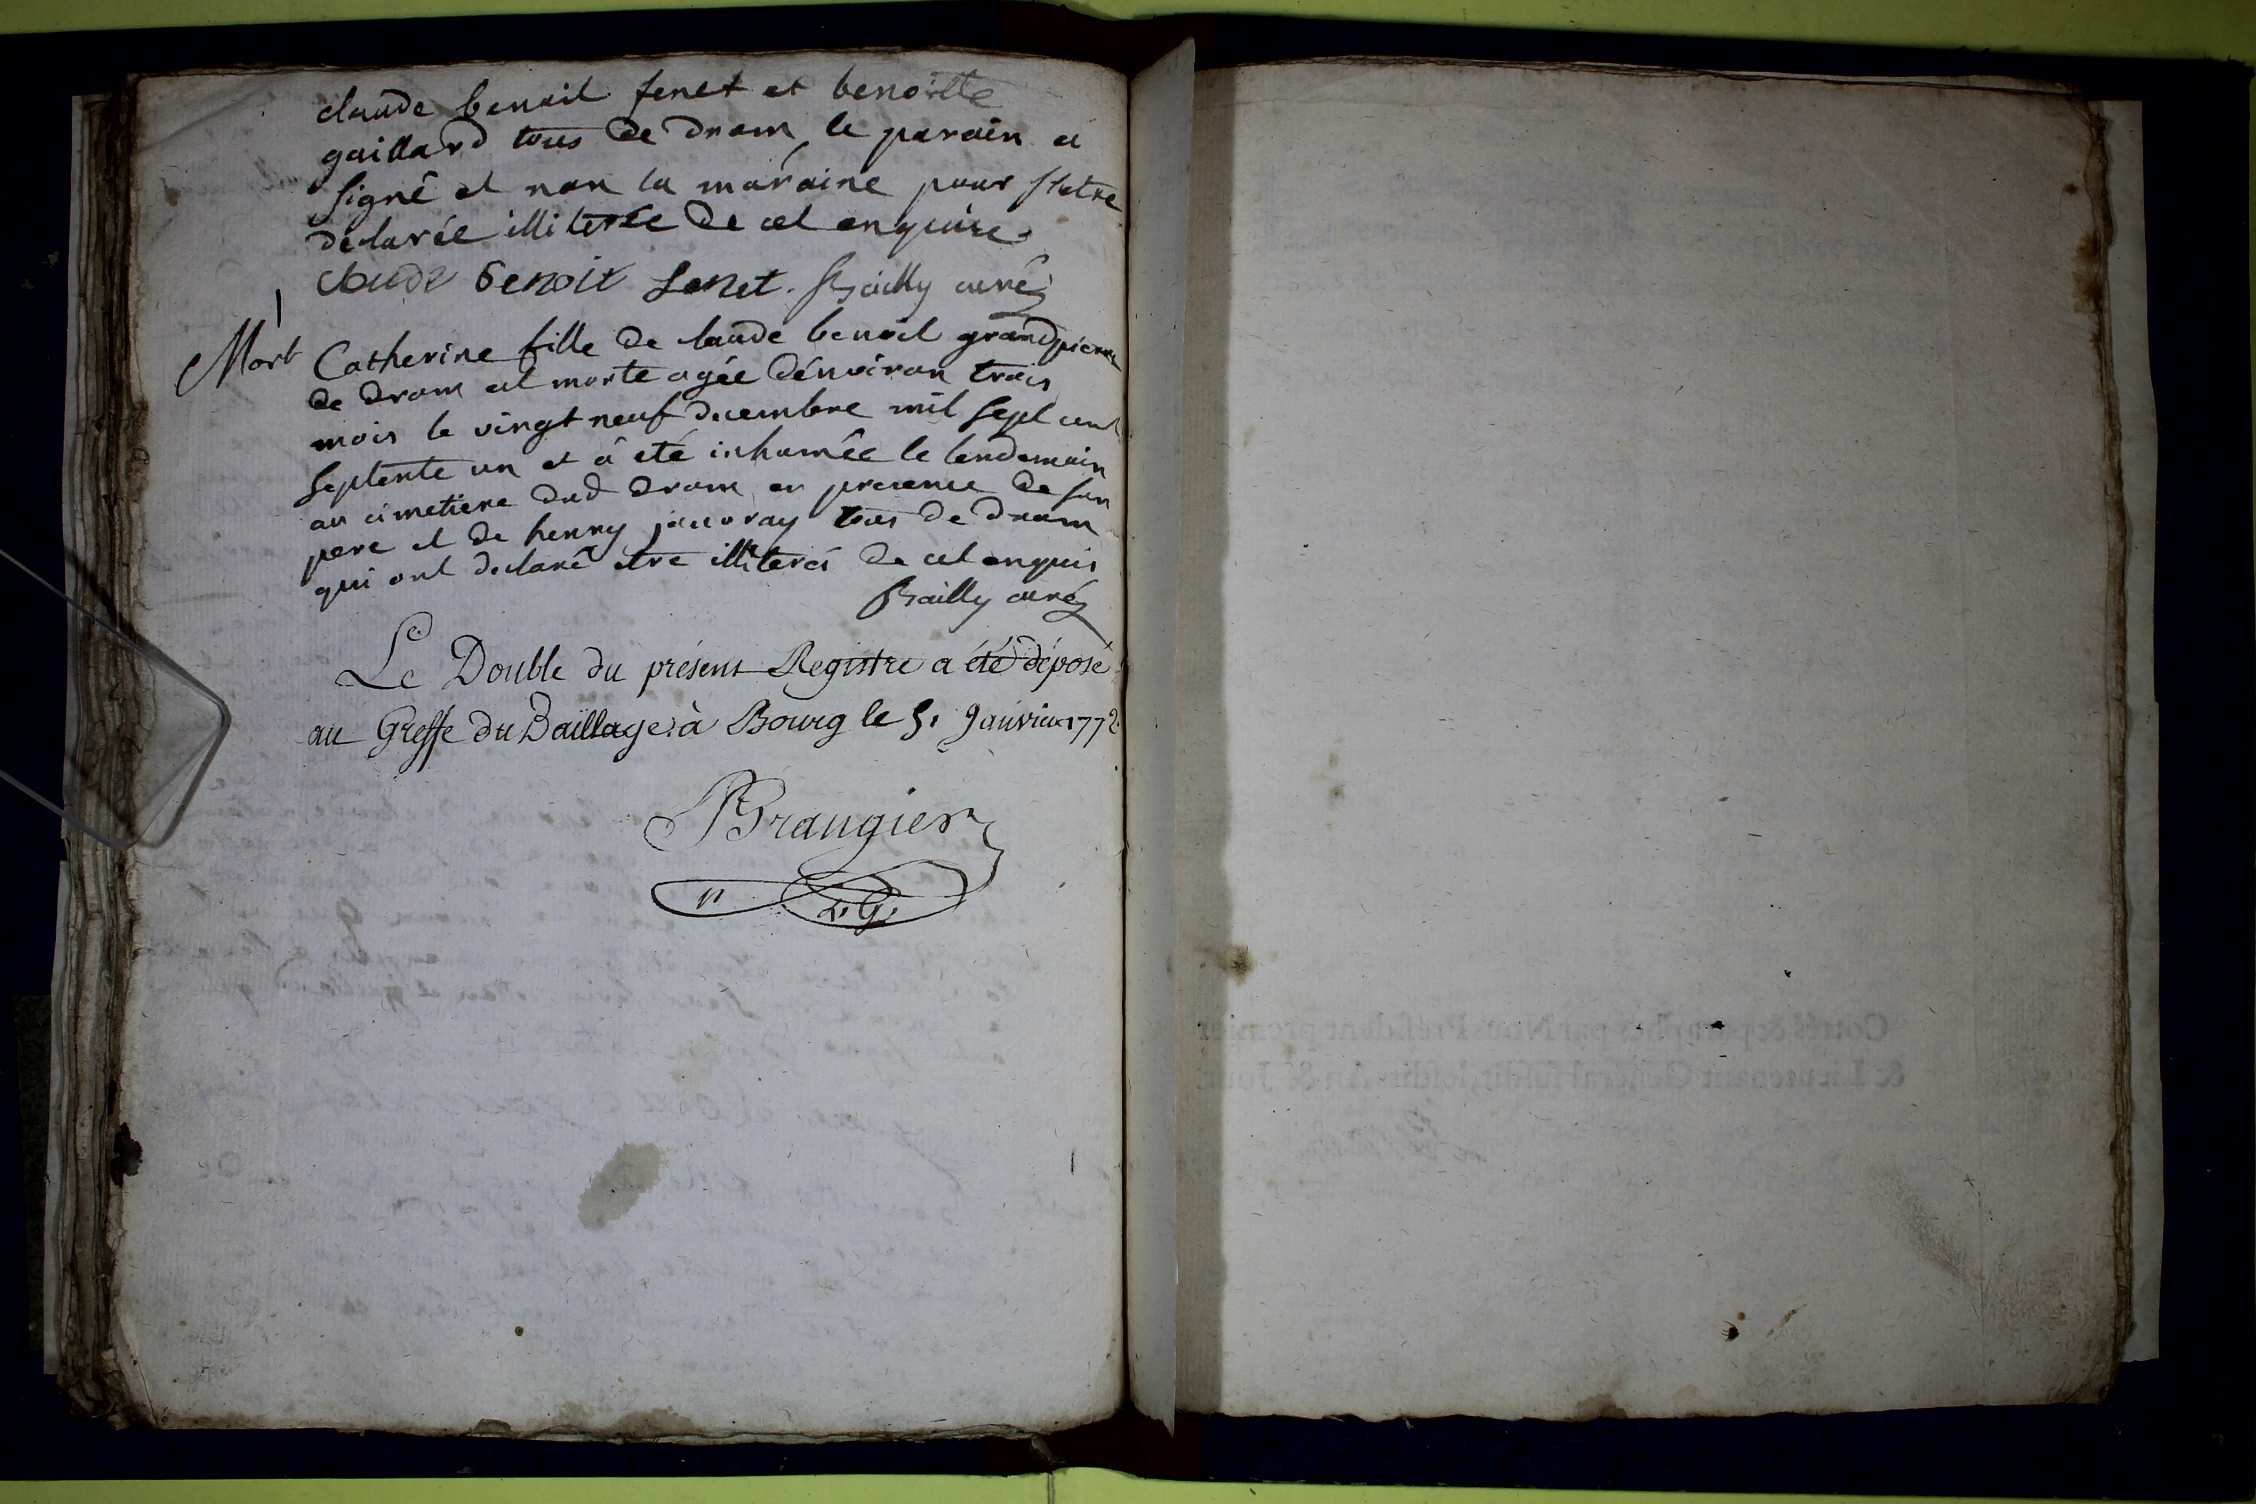 claude benoit fenet et benoitte
gaillard tous de drom le parain a
signé et non la maraine pour s'etre
declarée illiterée de cet enquise
claude benoit fenet. Bailly curé
Mort Catherine fille de claude benoit grandpierre
de drom est morte agée d'énviron trois
mois le vingt neuf decembre mil sept cent
septente un et à eté inhumée le lendemain
au cimetiere dud drom en presence de son
pere et de henry jauvray tous de drom
qui ont declaré etre illiterés de cet enquis
Bailly curé
Le Double du présent Registre a été déposé
au Greffe du Baillage à Bourg le 5. Janvier 1772.
Brangier
Cottés & paraphés par Nous Président premier
& Lieutenant Général susdit, lesdits An & Jour